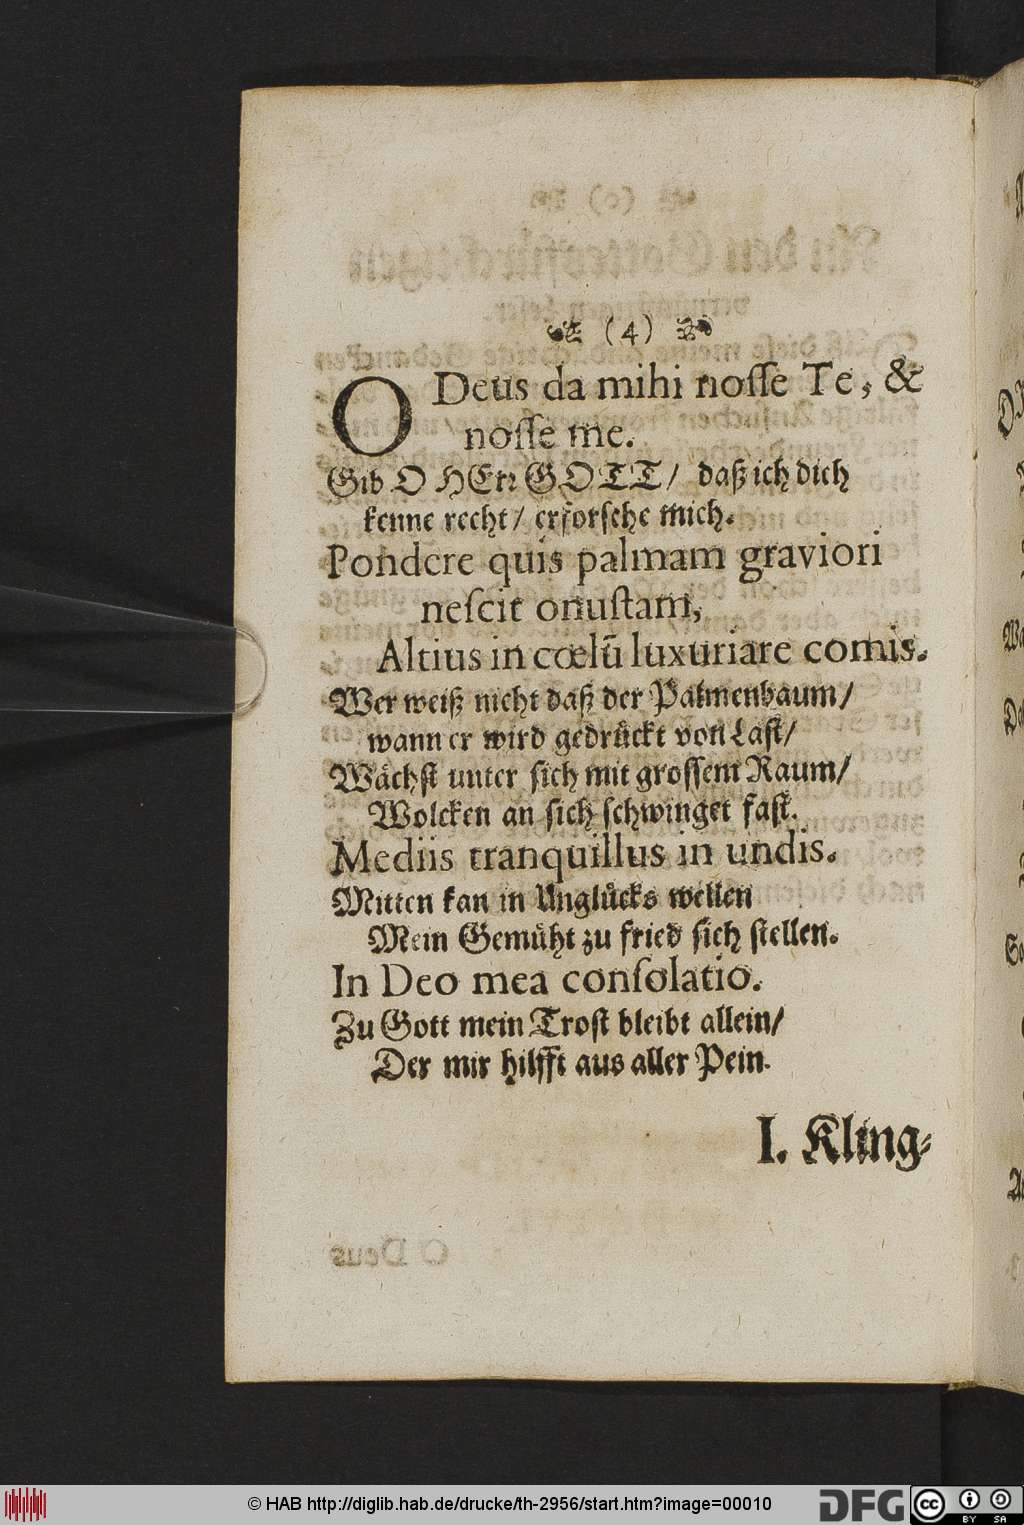 (4)
O Deus da mihi noſſe Te, &
noſſe me.
Gib O HErr GOTT/ daß ich dich
kenne recht/ erforsche mich.
Pondere quis palmam graviori
neſcit onuſtam,
Altius in cœlũ luxuriare comis.
Wer weiß nicht daß der Palmenbaum/
wann er wird gedruͤckt von Laſt/
Waͤchſt unter ſich mit groſſem Raum/
Wolcken an ſich ſchwinget faſt.
Mediis tranquillus in undis.
Mitten kan in Ungluͤcks wellen
Mein Gemuͤht zu fried ſich ſtellen.
In Deo mea conſolatio.
Zu Gott mein Troſt bleibt allein/
Der mir hilfft aus aller Pein.
I. Kling-
© HAB http://diglib.hab.de/drucke/th-2956/start.htm?image=00010
DFG
cc
BY SA